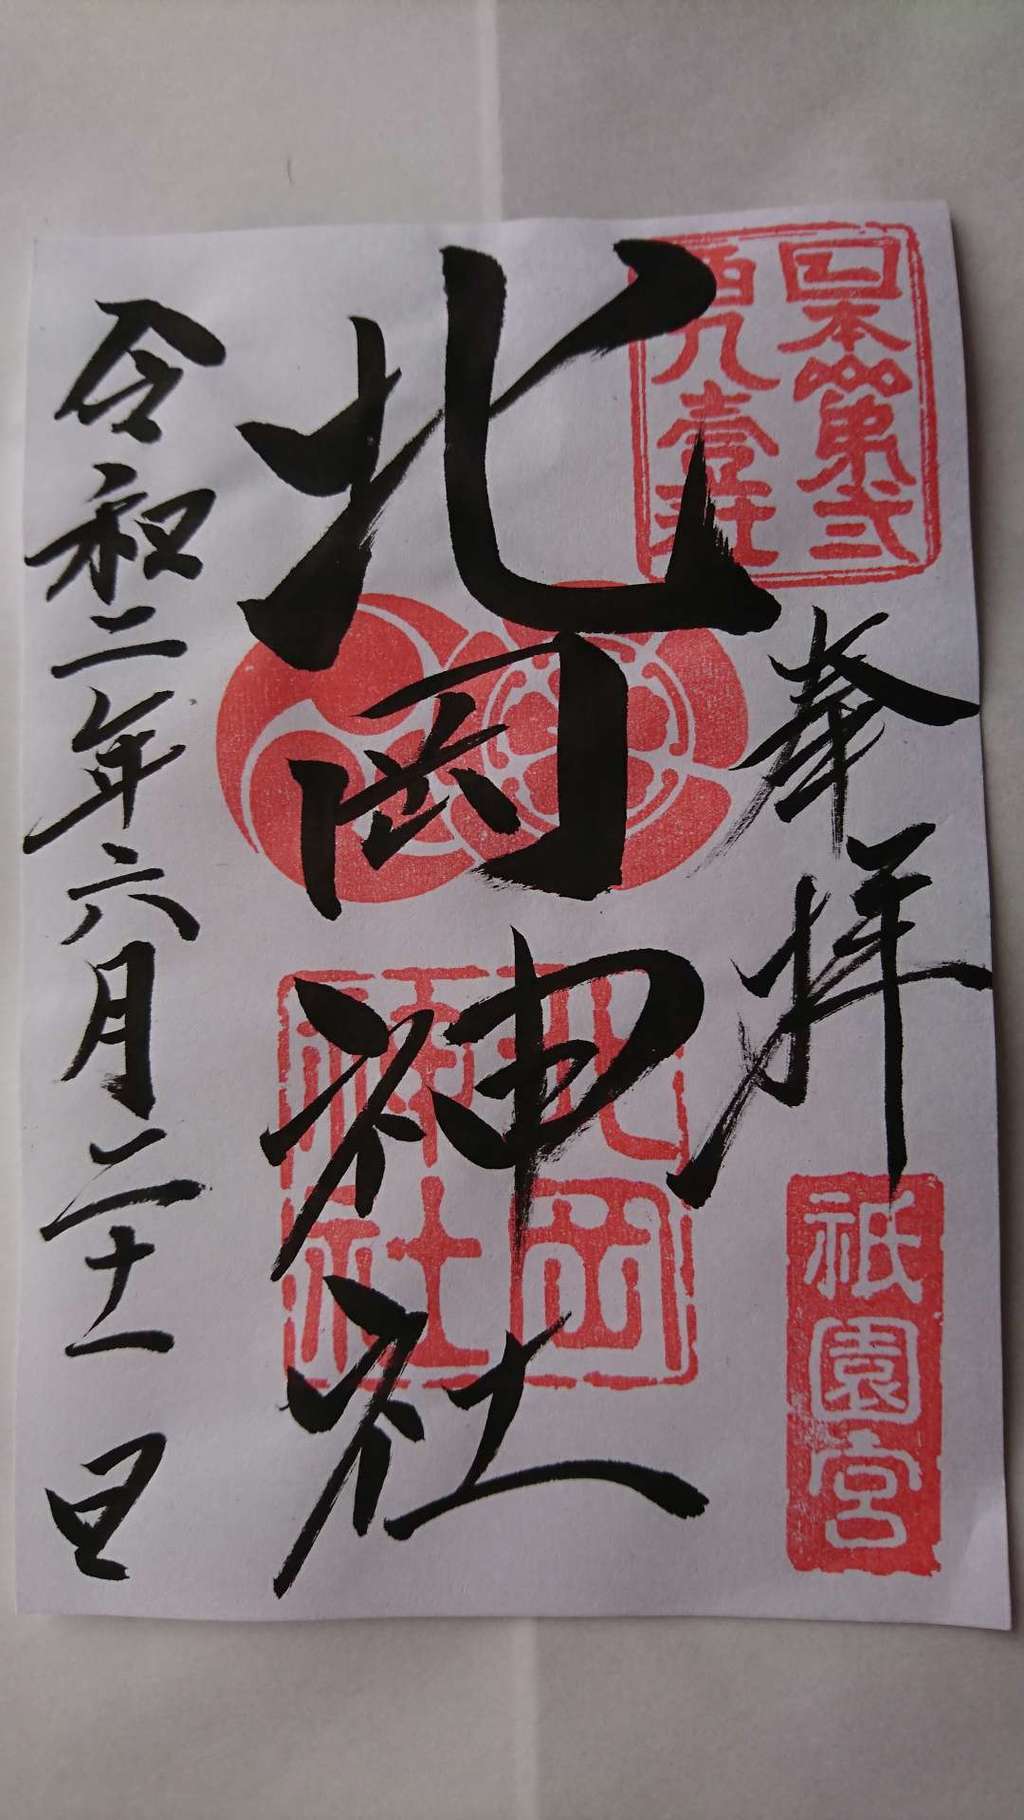 日本第弐
百八壹社
奉拝
祇園宮
北岡神社
北岡
神社
令和二年六月二十一日